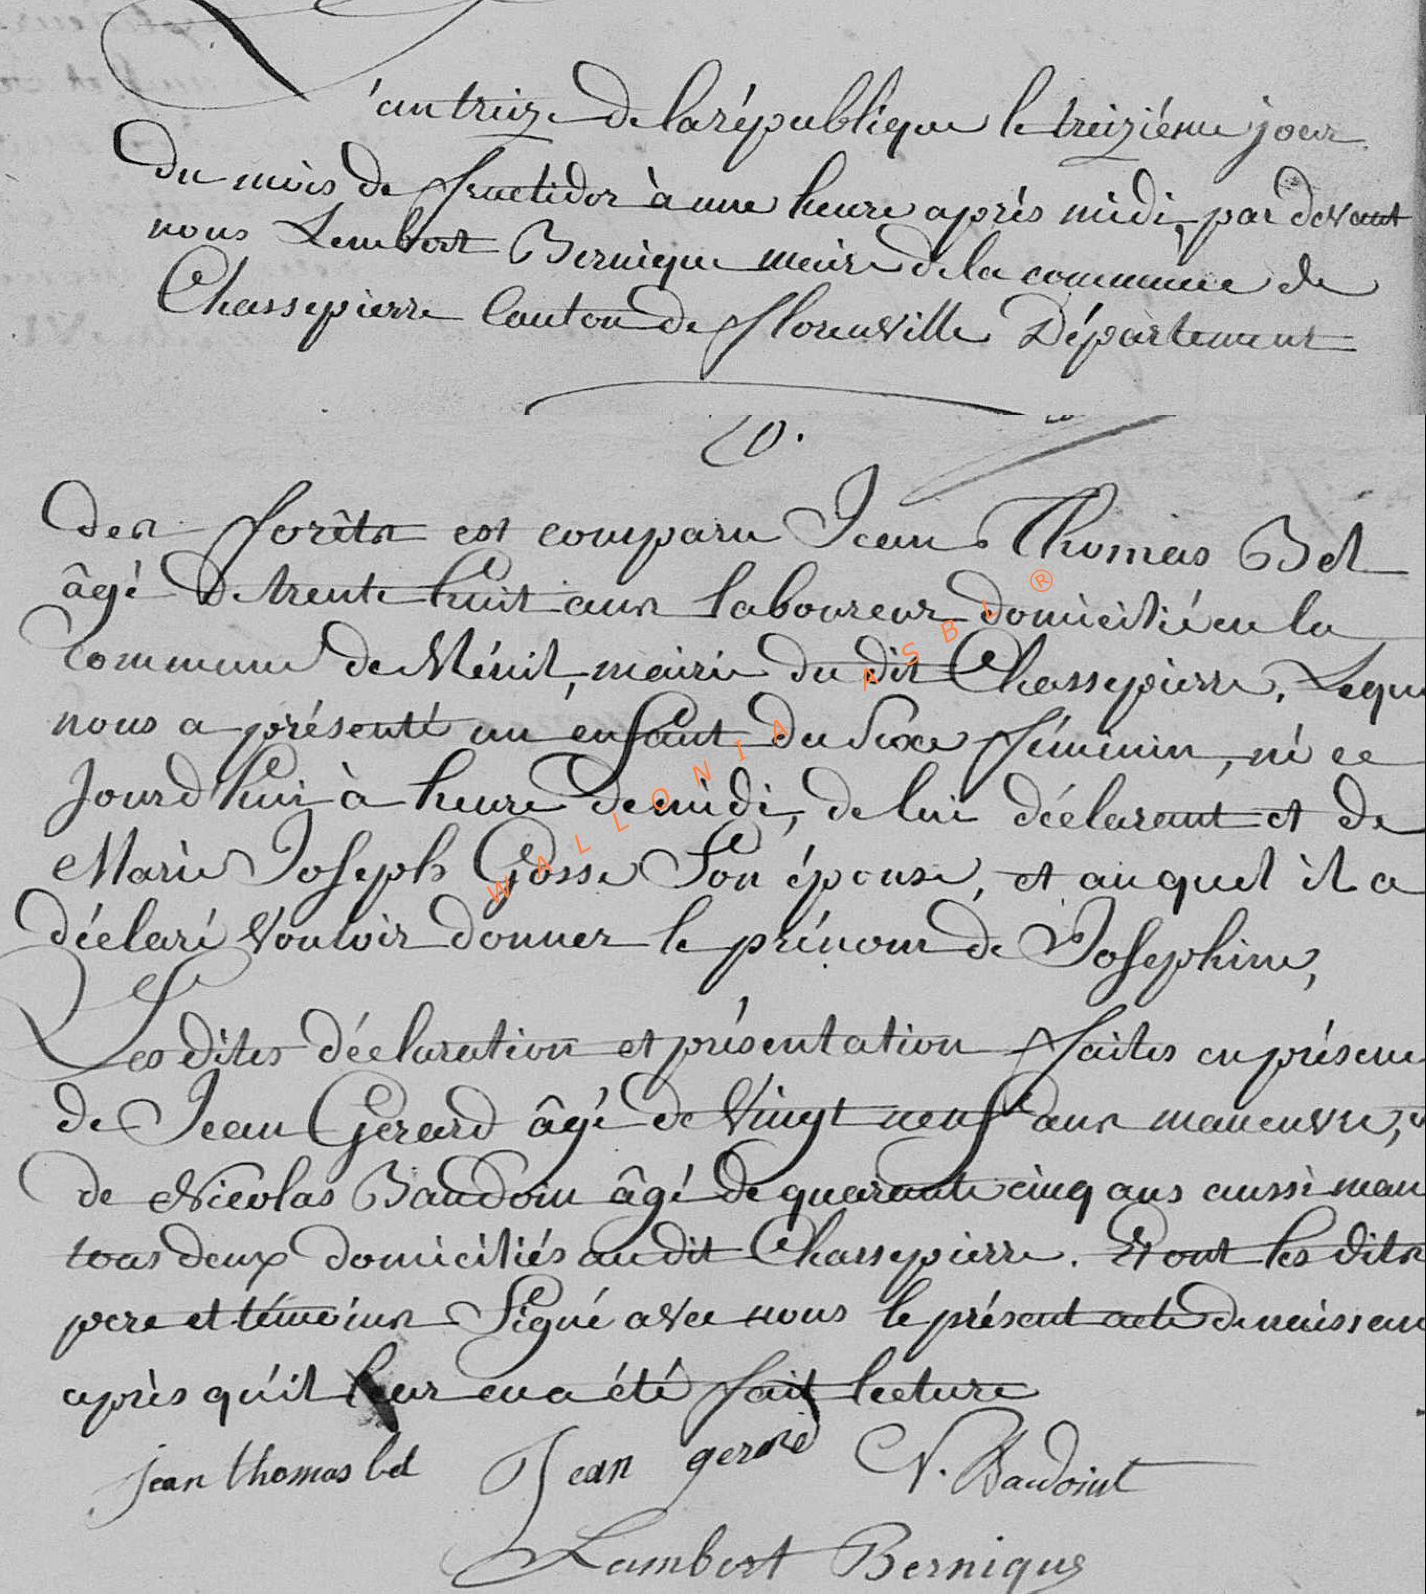 L'an treize de la république le treiziéme jour
du mois de fructidor à une heure après midi, par devant
nous Lambert Bernique maire de la commune de
Chassepierre Canton de florenville Département
des forêts est comparu Jean Thomas Bel
âgé de trente huit ans laboureur domicilié en la
Commune de Ménil, mairie du dit Chassepierre, Lequ
nous a présenté un enfant du Sexe féminin, né ce
Jourd'hui à heure de midi, de lui déclarant et de
Marie Joseph Gosse Son épouse, et auquel il a
déclaré Vouloir donner le prénom de Josephine,
Les dites déclaration et présentation faites en présenc
de Jean Gerard âgé de Vingt neuf ans maneuvre, e
de Nicolas Baudoin âgé de quarante cinq ans aussi man
tous deux domiciliés au dit Chassepierre. Et ont les dits
pere et témoins Signé avec nous le présent acte de naissan
après qu'il leur en a été fait lecture
jean thomas bel Jean gerard N. Baudoint
Lambert Bernique
WALLONIA ASBL ®